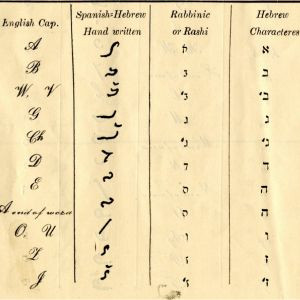 English Cap. Spanish-Hebrew Hand written Rabbinic or Rashi Hebrew Characteres
A א א
B ב ב
W. V ב׳ ב׳
G ג ג
Ch ג׳ ג׳
D ד ד
E ה ה
A end of word ה ה
O. U ו ו
Z ז ז
J ז׳ ז׳